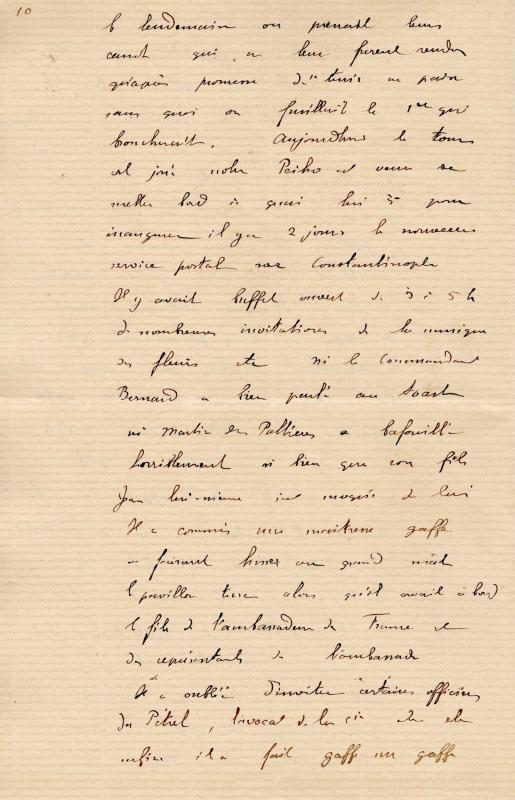 10
le lendemain on prenait leurs
qui ne leur furent rendus
qu'après promesse de tenir en paix
sans quoi on fusillait le 1er qui
broncherait. Aujourdhui le tour
est joué notre Peiho est venu se
mettre bord à quai lui pour
inaugurer il y a 2 jours le nouveau
service postal sur Constantinople
Il y avait buffet ouvert de 3 à 5 h
de nombreuses invitations de la musique
des fleurs etc si le Commandant
Bernard a bien parlé au toast
Martin des Pallières a bafouillé
horriblement si bien que son fils
Jean lui-même de lui
Il a commis une maitresse gaffe
en faisant hisser au grand mât
le pavillon turc alors qu'il avait à bord
le fils de l'ambassadeur de France et
des représentants de l'ambassade
Il a oublié d'inviter certaines officiers
du Pétrel, l'avocat de la cie etc etc
enfin il a fait gaffe sur gaffe